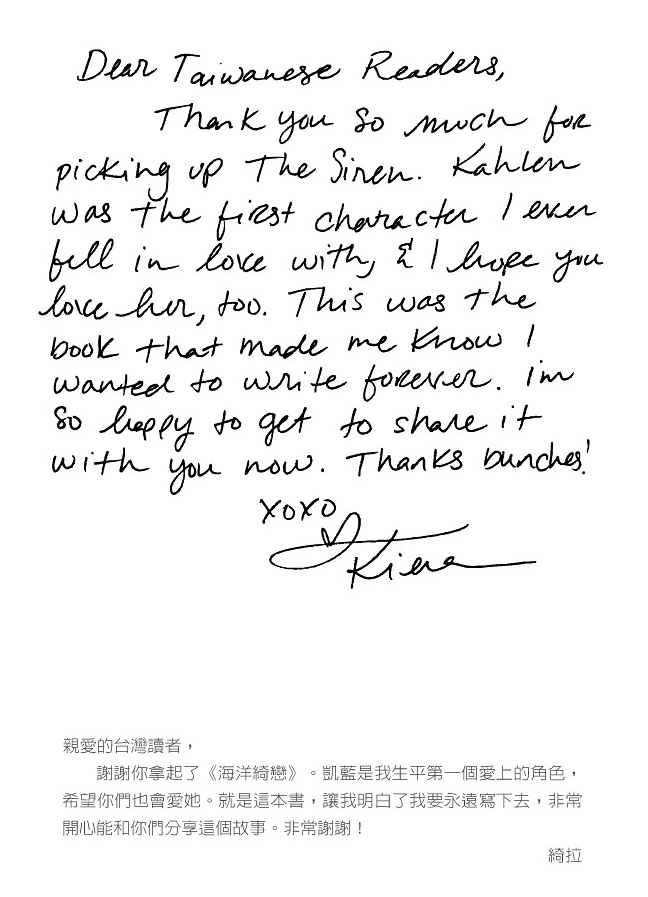 Dear Taiwanese Readers,
Thank you so much for
picking up The Siren. Kahlen
was the first character I ever
fell in love with, & I hope you
love her, too. This was the
book that made me know I
wanted to write forever. I'm
so happy to get to share it
with you now. Thanks bunches!
XOXO
Kiera
親愛的台灣讀者，
謝謝你拿起了《海洋綺戀》。凱藍是我生平第一個愛上的角色，
希望你們也會愛她。就是這本書，讓我明白了我要永遠寫下去，非常
開心能和你們分享這個故事。非常謝謝！
綺拉